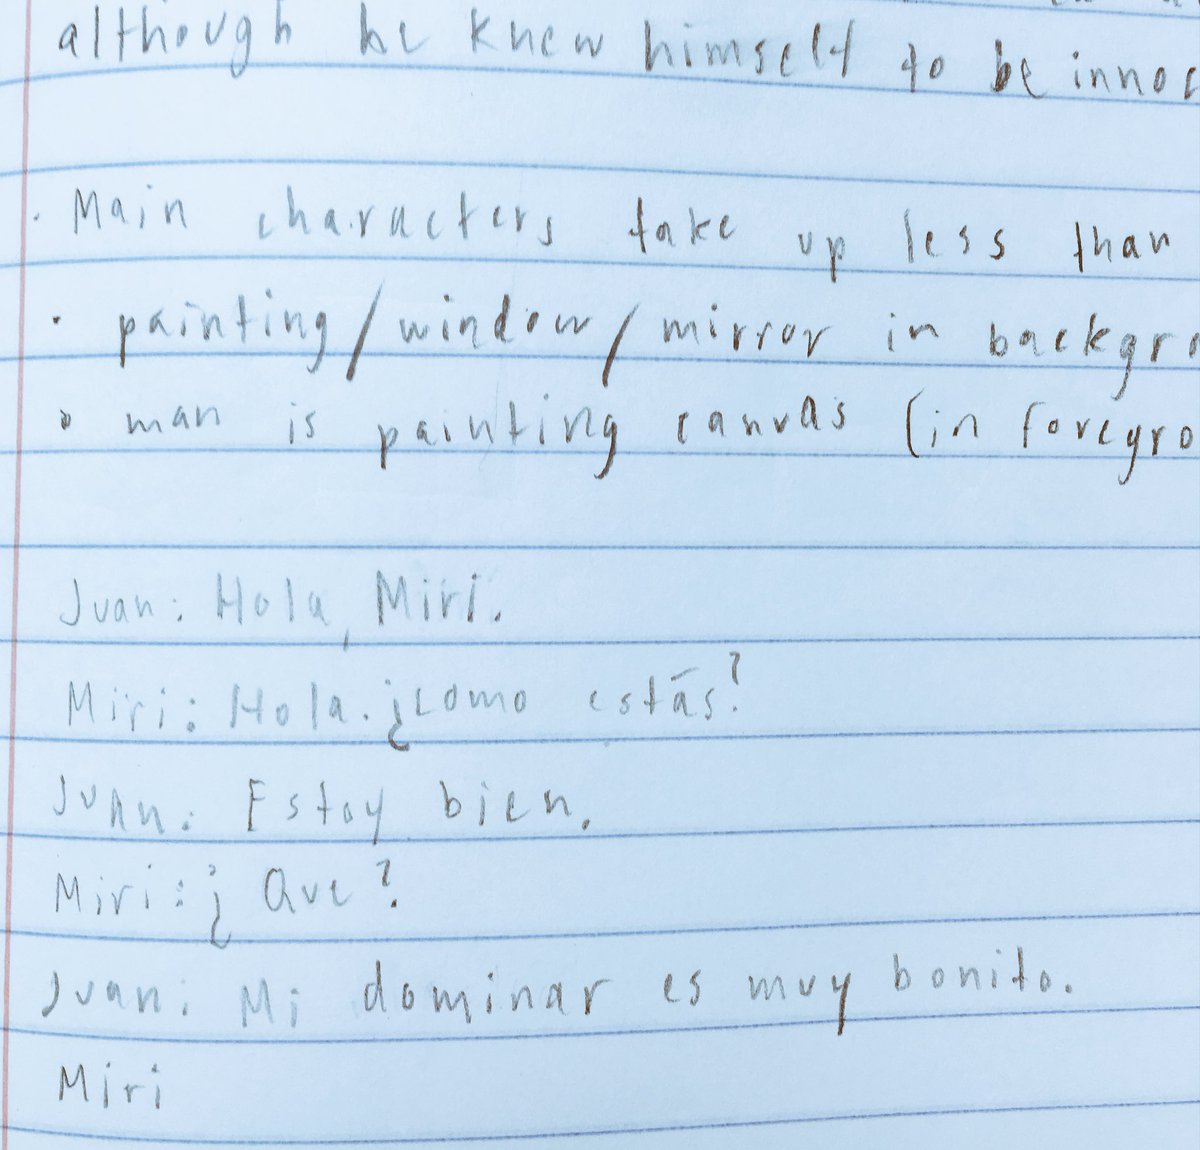 although he knew himself to be innoc
· Main characters take up less than
· painting/window/mirror in backgro
· man is painting canvas (in foregro
Juan: Hola, Miri.
Miri: Hola. ¿como estás?
Juan: Estoy bien.
Miri: ¿Que?
Juan: Mi dominar es muy bonito.
Miri